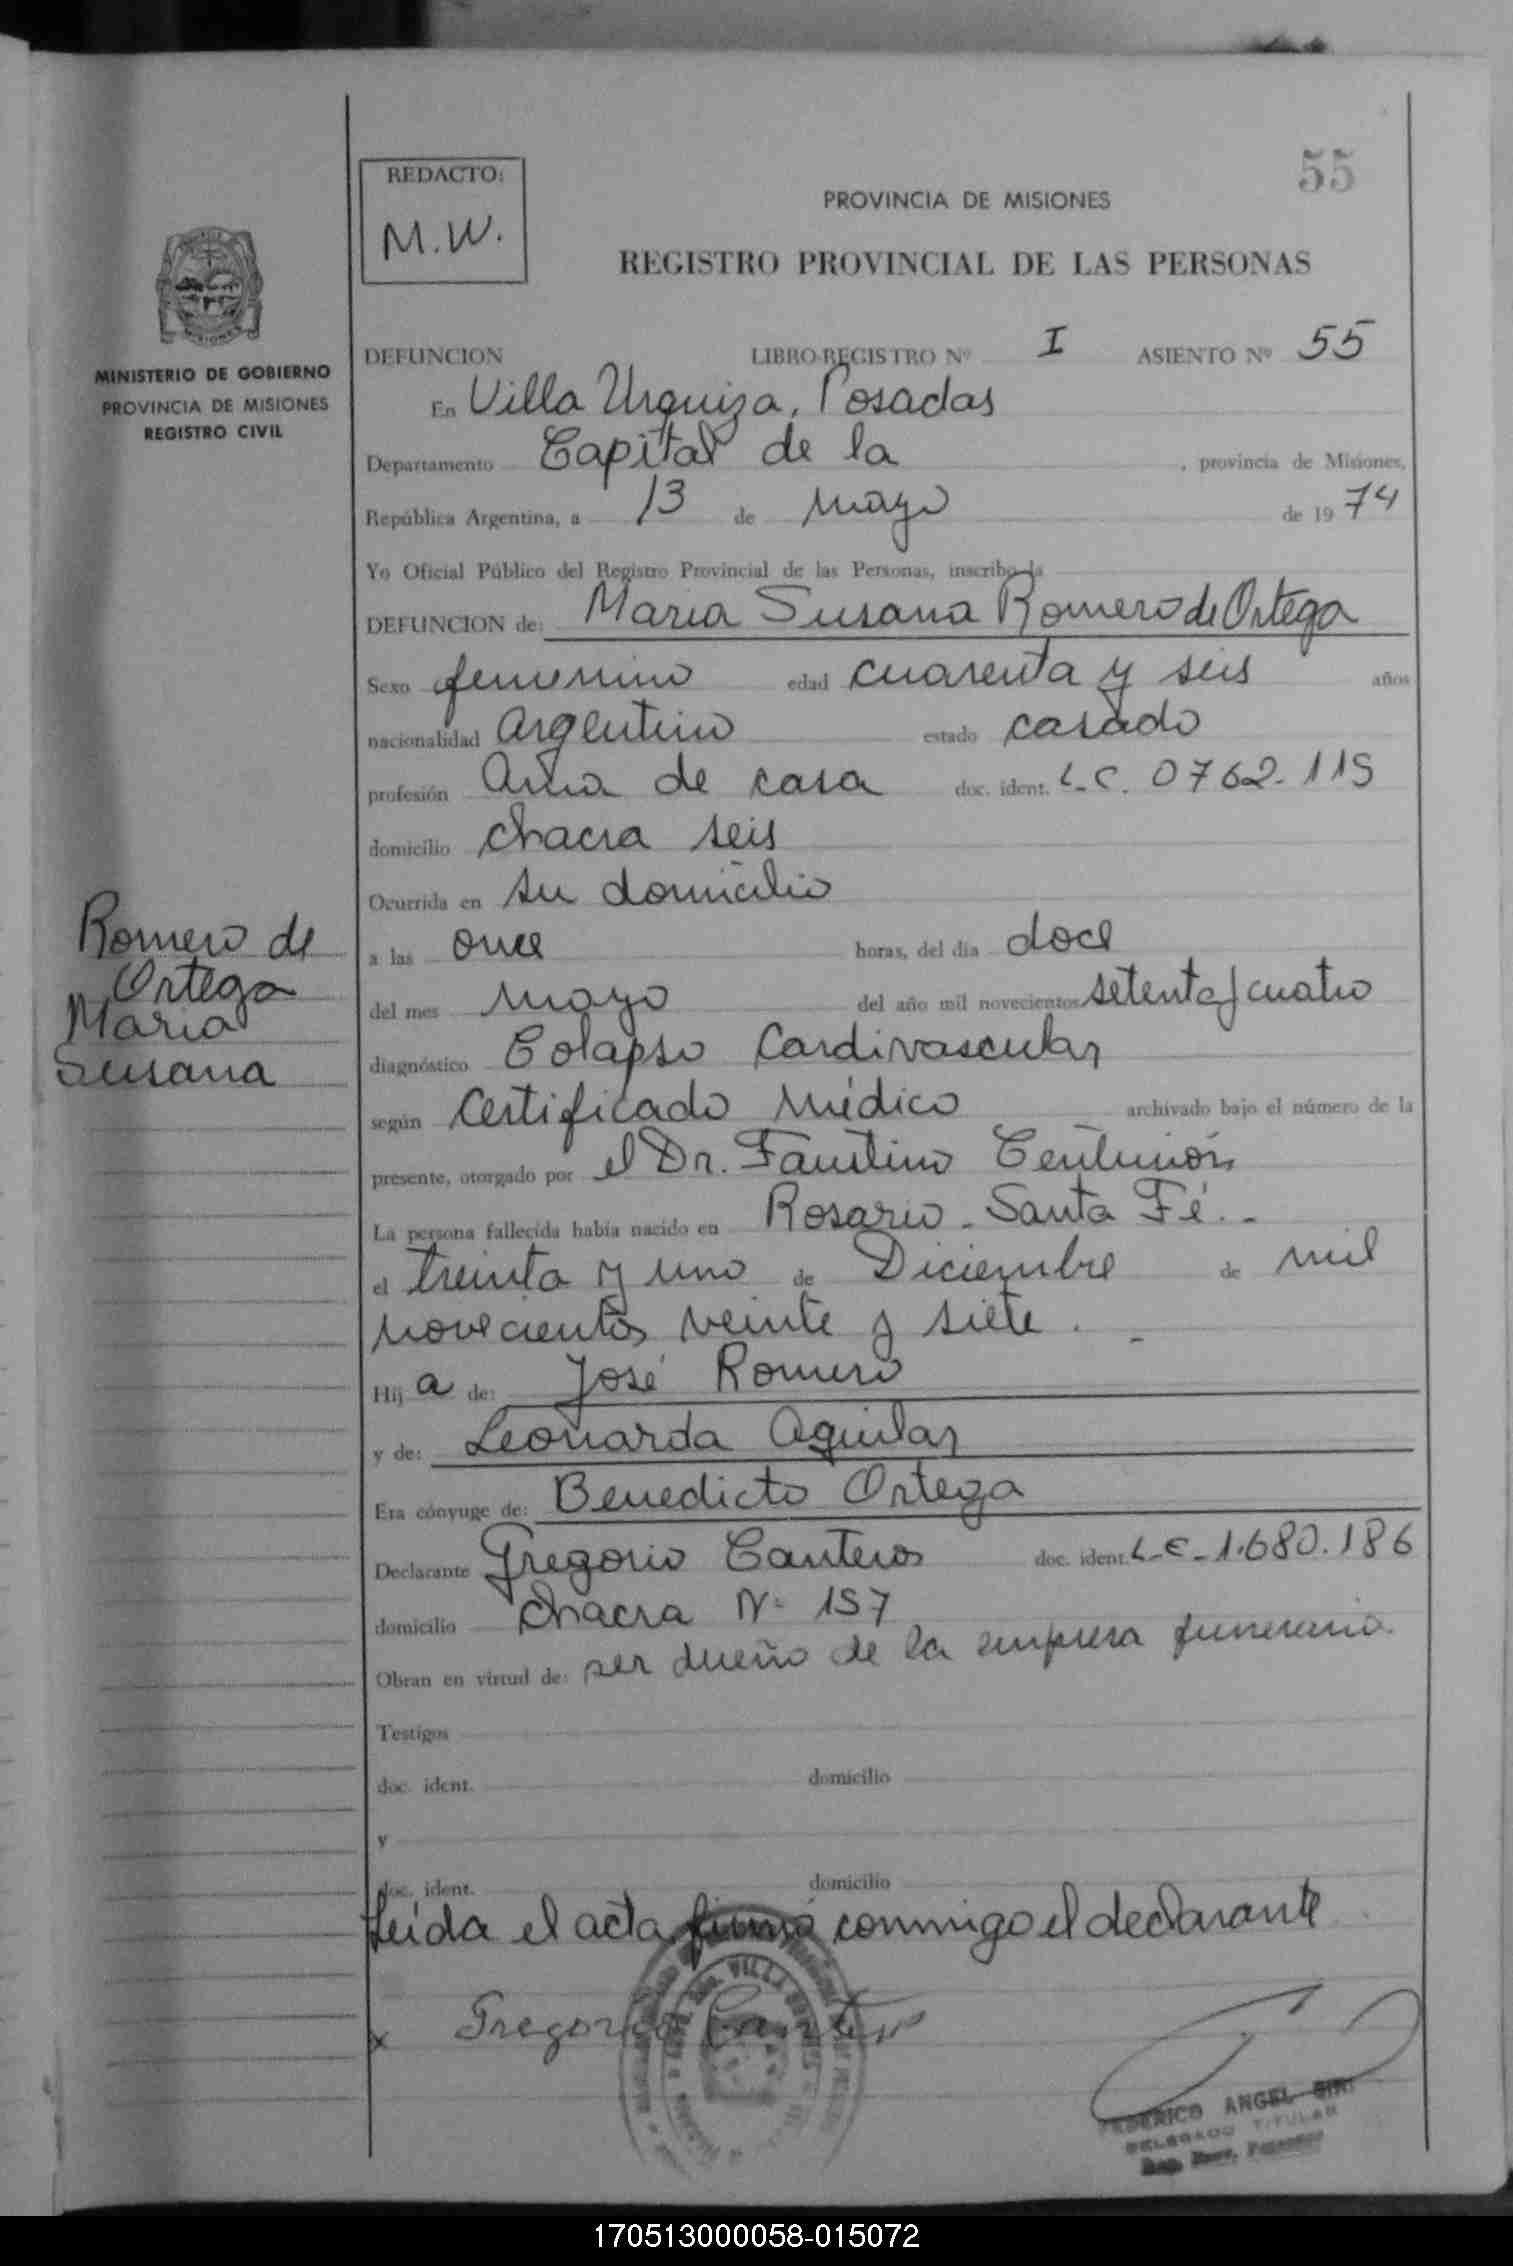 55
REDACTO:
M.W.
PROVINCIA DE MISIONES
REGISTRO PROVINCIAL DE LAS PERSONAS
MISIONES
MINISTERIO DE GOBIERNO
PROVINCIA DE MISIONES
REGISTRO CIVIL
DEFUNCION LIBRO-REGISTRO Nº I ASIENTO Nº 55
En Villa Urquiza, Posadas
Departamento Capital de la , provincia de Misiones,
República Argentina, a 13 de mayo de 1974
Yo Oficial Público del Registro Provincial de las Personas, inscribo la
DEFUNCION de: Maria Susana Romero de Ortega
Sexo femenino edad cuarenta y seis años
nacionalidad argentino estado casado
profesión Ama de casa doc. ident. L-C. 0762.115
domicilio chacra seis
Ocurrida en su domicilio
a las once horas, del día doce
del mes mayo del año mil novecientos setenta y cuatro
diagnóstico Colapso Cardivascular
según Certificado Médico archivado bajo el número de la
presente, otorgado por el Dr. Faustino Centurión
La persona fallecida había nacido en Rosario - Santa Fé. -
el treinta y uno de Diciembre de mil
novecientos veinte y siete. -
Hij a de: José Romero
y de: Leonarda Aguilar
Era cónyuge de: Benedicto Ortega
Declarante Gregorio Canteros doc. ident. L-E-1.680.186
domicilio Chacra Nº 157
Obran en virtud de: ser dueño de la empresa funeraria.
Testigos
doc. ident. domicilio
y
doc. ident. domicilio
Leida el acta firmó conmigo el declarante
x Gregorio Canteros
VILLA
FEDERICO ANGEL
DELEGADO TITULAR
Romero de
Ortega
Maria
Susana
170513000058-015072